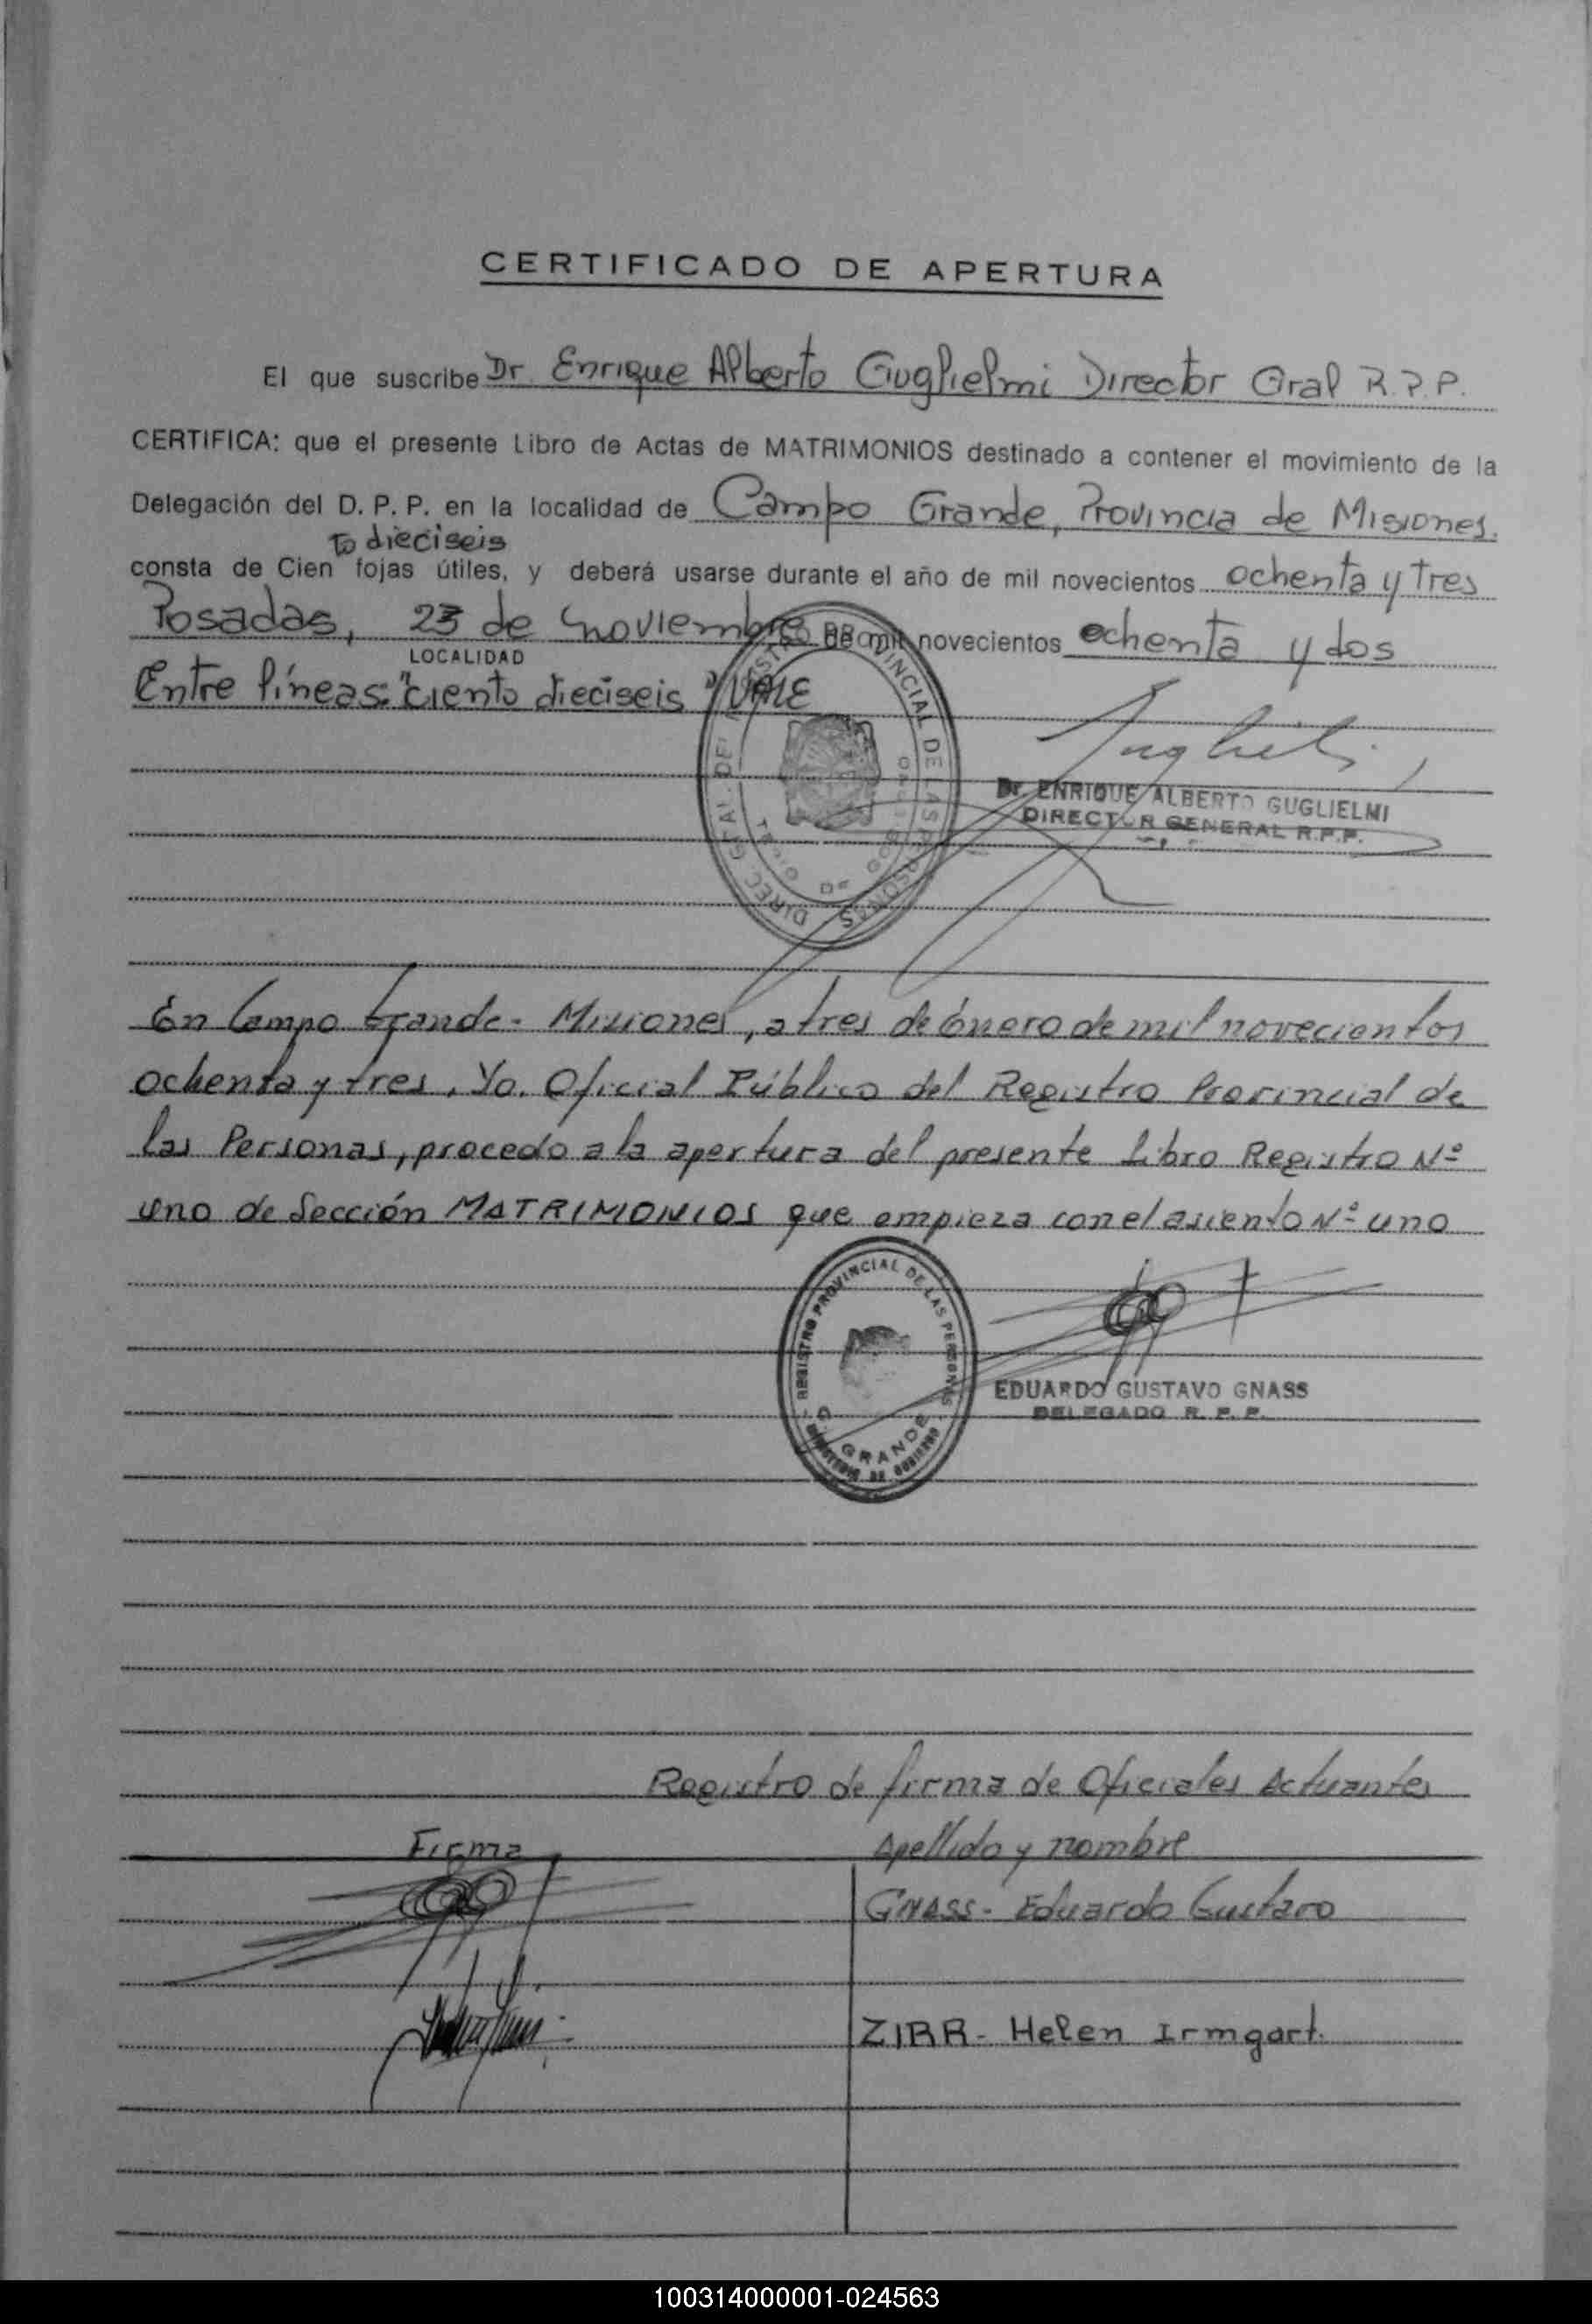 CERTIFICADO DE APERTURA
El que suscribe Dr. Enrique Alberto Guglielmi Director Gral R.P.P.
CERTIFICA: que el presente Libro de Actas de MATRIMONIOS destinado a contener el movimiento de la
Delegación del D. P. P. en la localidad de Campo Grande, Provincia de Misiones.
to dieciseis
consta de Cien fojas útiles, y deberá usarse durante el año de mil novecientos ochenta y tres
Posadas, 23 de Noviembre de mil novecientos ochenta y dos
LOCALIDAD
Entre líneas: "ciento dieciseis" VALE
DIREC. GRAL. DEL REGISTRO PROVINCIAL DE LAS PERSONAS
Dr. ENRIQUE ALBERTO GUGLIELMI
DIRECTOR GENERAL R.P.P.
En Campo Grande - Misiones, a tres de Enero de mil novecientos
ochenta y tres, Yo. Oficial Público del Registro Provincial de
las Personas, procedo a la apertura del presente Libro Registro Nº
uno de Sección MATRIMONIOS que empieza con el asiento Nº uno
REGISTRO PROVINCIAL DE LAS PERSONAS
GRANDE
MINISTERIO DE GOBIERNO
EDUARDO GUSTAVO GNASS
DELEGADO R. P. P.
Registro de firma de Oficiales Actuantes
Firma Apellido y nombre
GNASS - Eduardo Gustavo
ZIRR - Helen Irmgart.
100314000001-024563